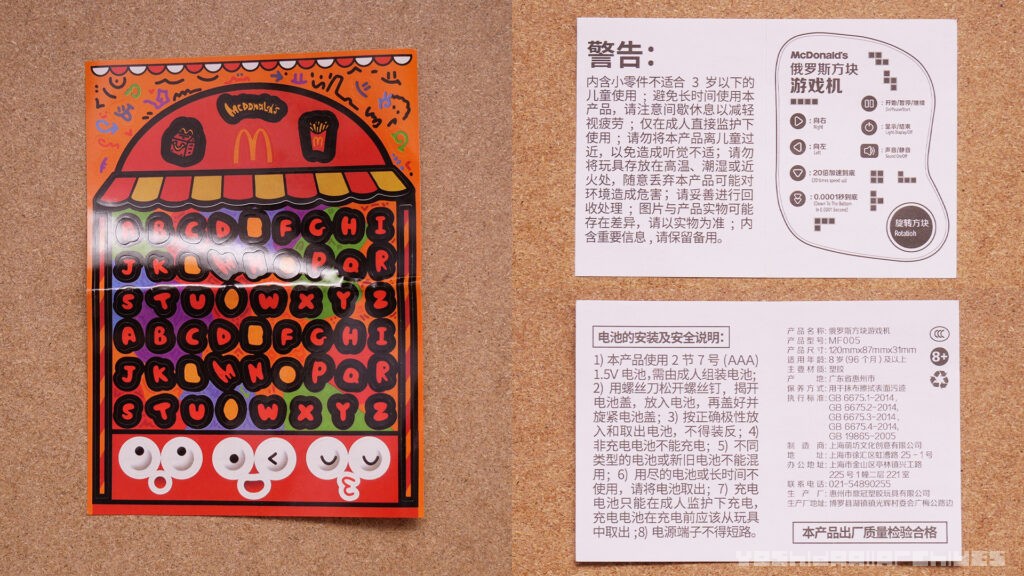 McDonald's
A B C D E F G H I
J K L M N O P Q R
S T U V W X Y Z
A B C D E F G H I
J K L M N O P Q R
S T U V W X Y Z
警告：
内含小零件不适合 3 岁以下的
儿童使用；避免长时间使用本
产品，请注意间歇休息以减轻
视疲劳；仅在成人直接监护下
使用；请勿将本产品离儿童过
近，以免造成听觉不适；请勿
将玩具存放在高温、潮湿或近
火处，随意丢弃本产品可能对
环境造成危害；请妥善进行回
收处理；图片与产品实物可能
存在差异，请以实物为准；内
含重要信息，请保留备用。
McDonald's
俄罗斯方块
游戏机
：向右
Right
：向左
Left
：20倍加速到底
(20 times speed up)
：0.0001秒到底
(Down To The Bottom
In 0.0001 Second)
：开始/暂停/继续
On/Pause/Start
：显示/结束
Light Display/Off
：声音/静音
Sound On/Off
旋转方块
Rotation
电池的安装及安全说明：
1) 本产品使用 2 节 7 号 (AAA)
1.5V 电池,需由成人组装电池;
2) 用螺丝刀松开螺丝钉，揭开
电池盖，放入电池，再盖好并
旋紧电池盖；3) 按正确极性放
入和取出电池，不得装反；4)
非充电电池不能充电；5) 不同
类型的电池或新旧电池不能混
用；6) 用尽的电池或长时间不
使用，请将电池取出；7) 充电
电池只能在成人监护下充电，
充电电池在充电前应该从玩具
中取出 ;8) 电源端子不得短路。
产品名称: 俄罗斯方块游戏机
产品型号: MF005
产品尺寸: 120mmx87mmx31mm
适用年龄: 8岁(96 个月) 及以上
主要材质: 塑胶
产 地: 广东省惠州市
保养方式: 用干抹布擦拭表面污迹
执行标准: GB 6675.1-2014,
GB 6675.2-2014,
GB 6675.3-2014,
GB 6675.4-2014,
GB 19865-2005
制 造 商: 上海萌坊文化创意有限公司
地 址: 上海市徐汇区虹漕路 25-1号
办公地址: 上海市金山区亭林镇兴工路
225 号 1幢二层 221 室
联系电话: 021-54890255
生 产 厂: 惠州市意冠塑胶玩具有限公司
生产厂地址: 博罗县湖镇镇光辉村委会广梅公路边
CCC
8+
本产品出厂质量检验合格